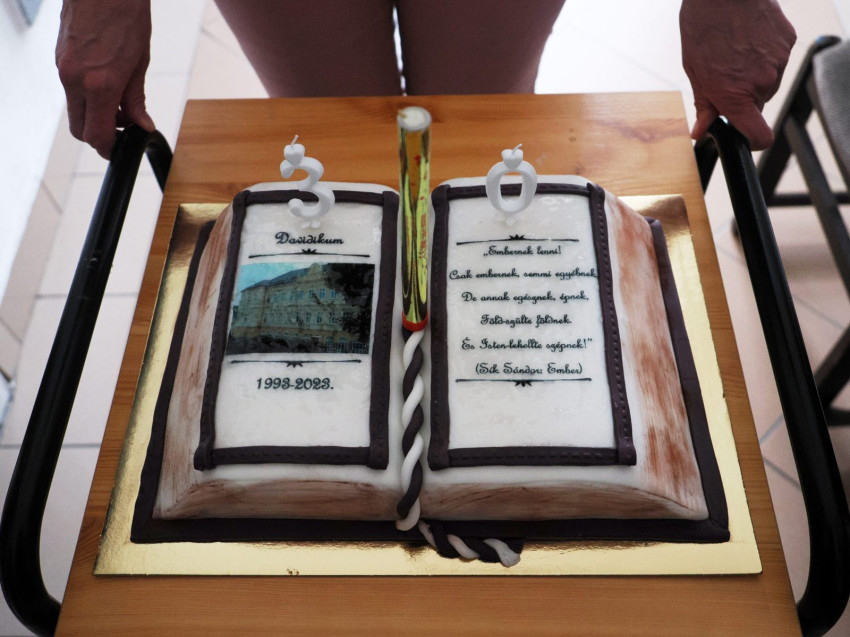 3 0
Davidikum
1993-2023.
„Embernek lenni!
Csak embernek, semmi egyébnek,
De annak egésznek, épnek,
Föld-szülte földnek
És Isten-lehellte szépnek!”
(Sík Sándor: Ember)